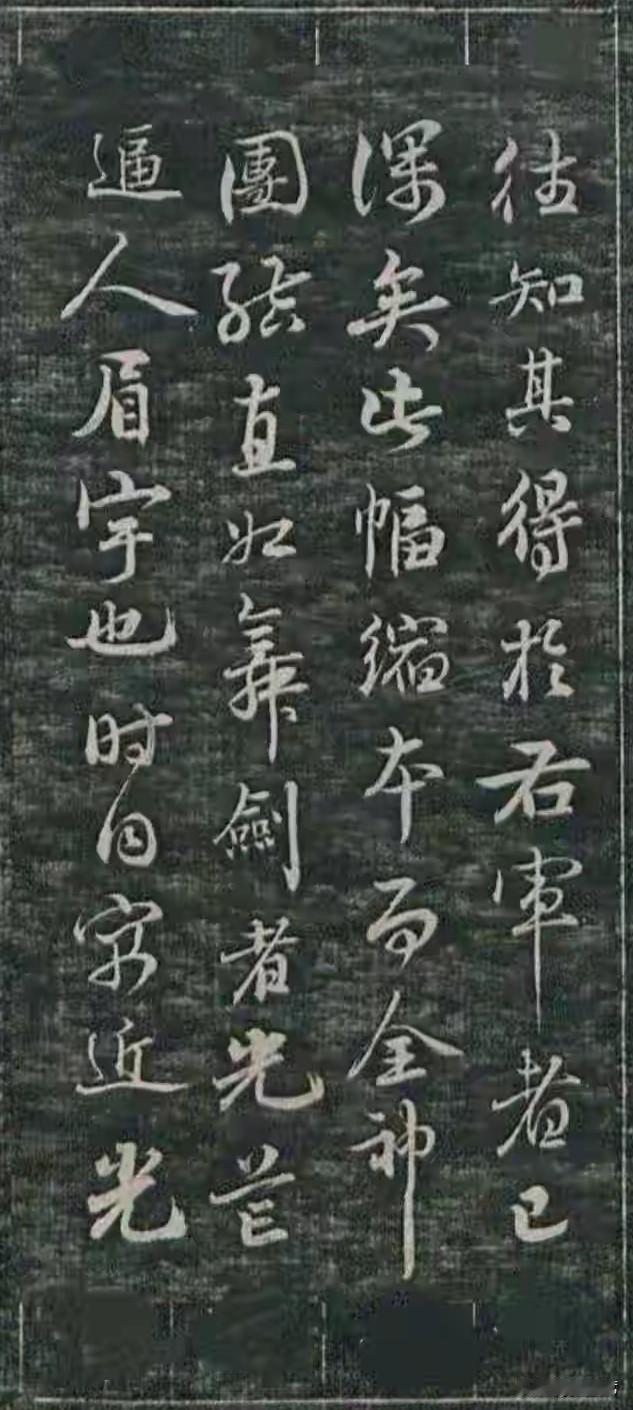 往知其得於右軍者已
深矣此幅縮本而全神
團結直如舞劍者光芒
逼人眉宇也时日穷近光